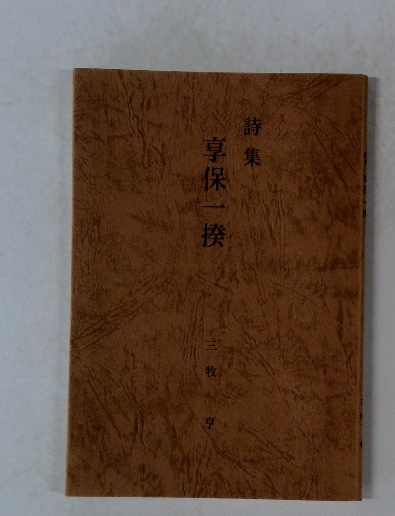 詩集
享保一揆
三牧亨